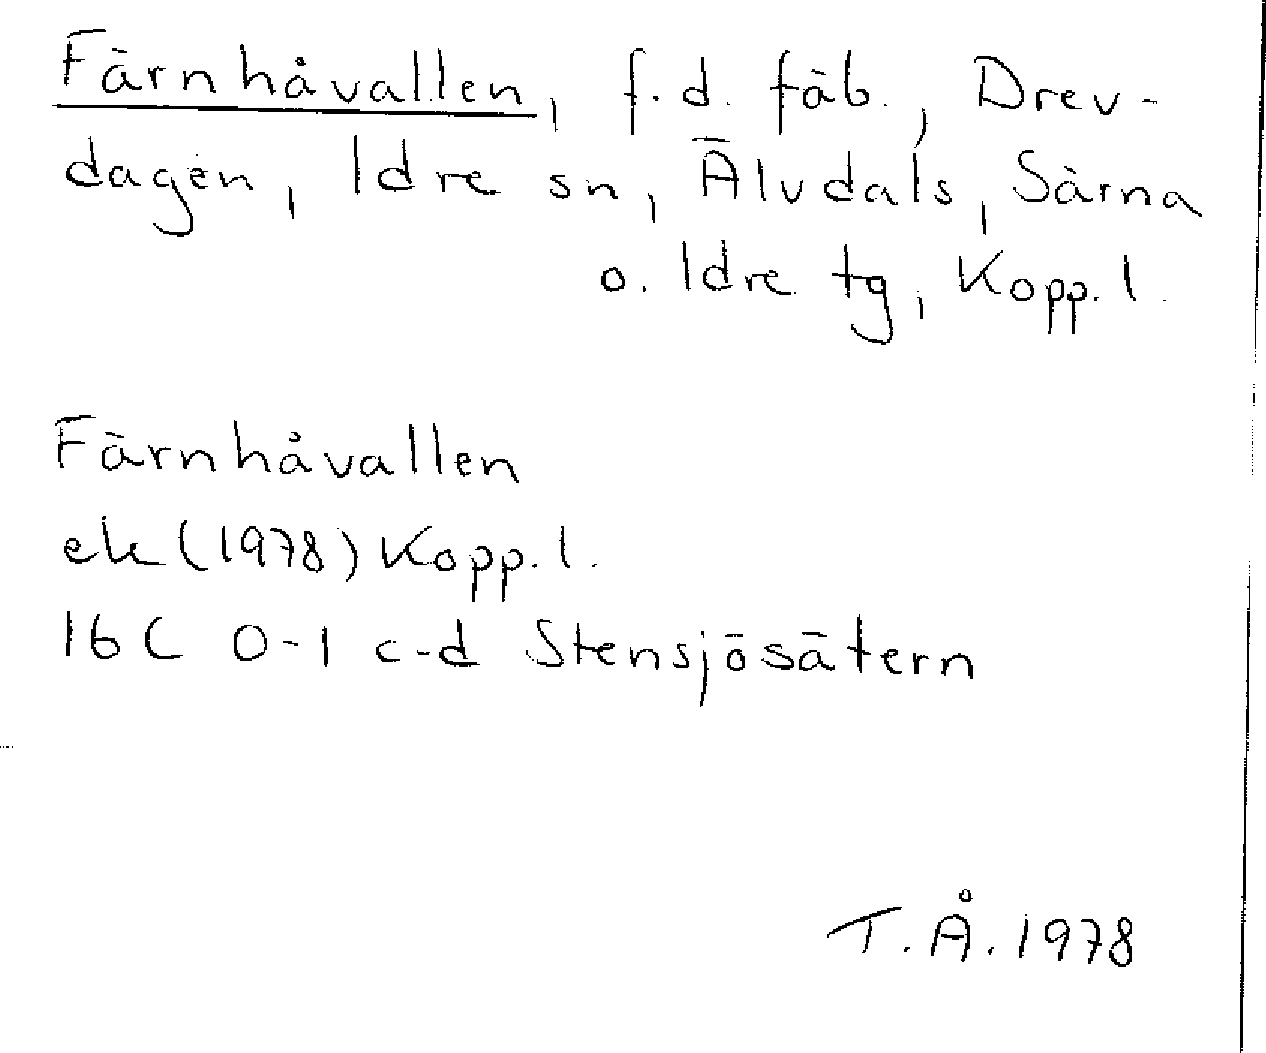 Färnhåvallen, f.d. fäb., Drev-
dagen, Idre sn, Älvdals, Särna
o. Idre tg, Kopp. l.
Färnhåvallen
ek (1978) Kopp. l.
16 C 0-1 c-d Stensjösätern
T. Å. 1978